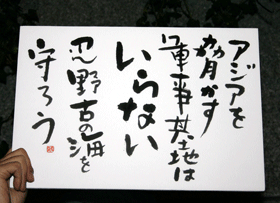 アジアを
脅かす
軍事基地は
いらない
忍野古の海を
守ろう